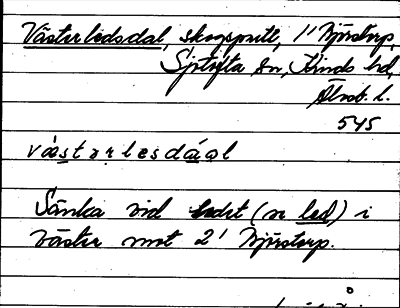 Västerledsdal, skogsparti, 1/1 Björstorp,
Sjötofta sn, Kinds hd,
Älvsb. l.
545
västərlesdáal
Sänka vid ledet (se led) i
väster mot 2/1 Björstorp.